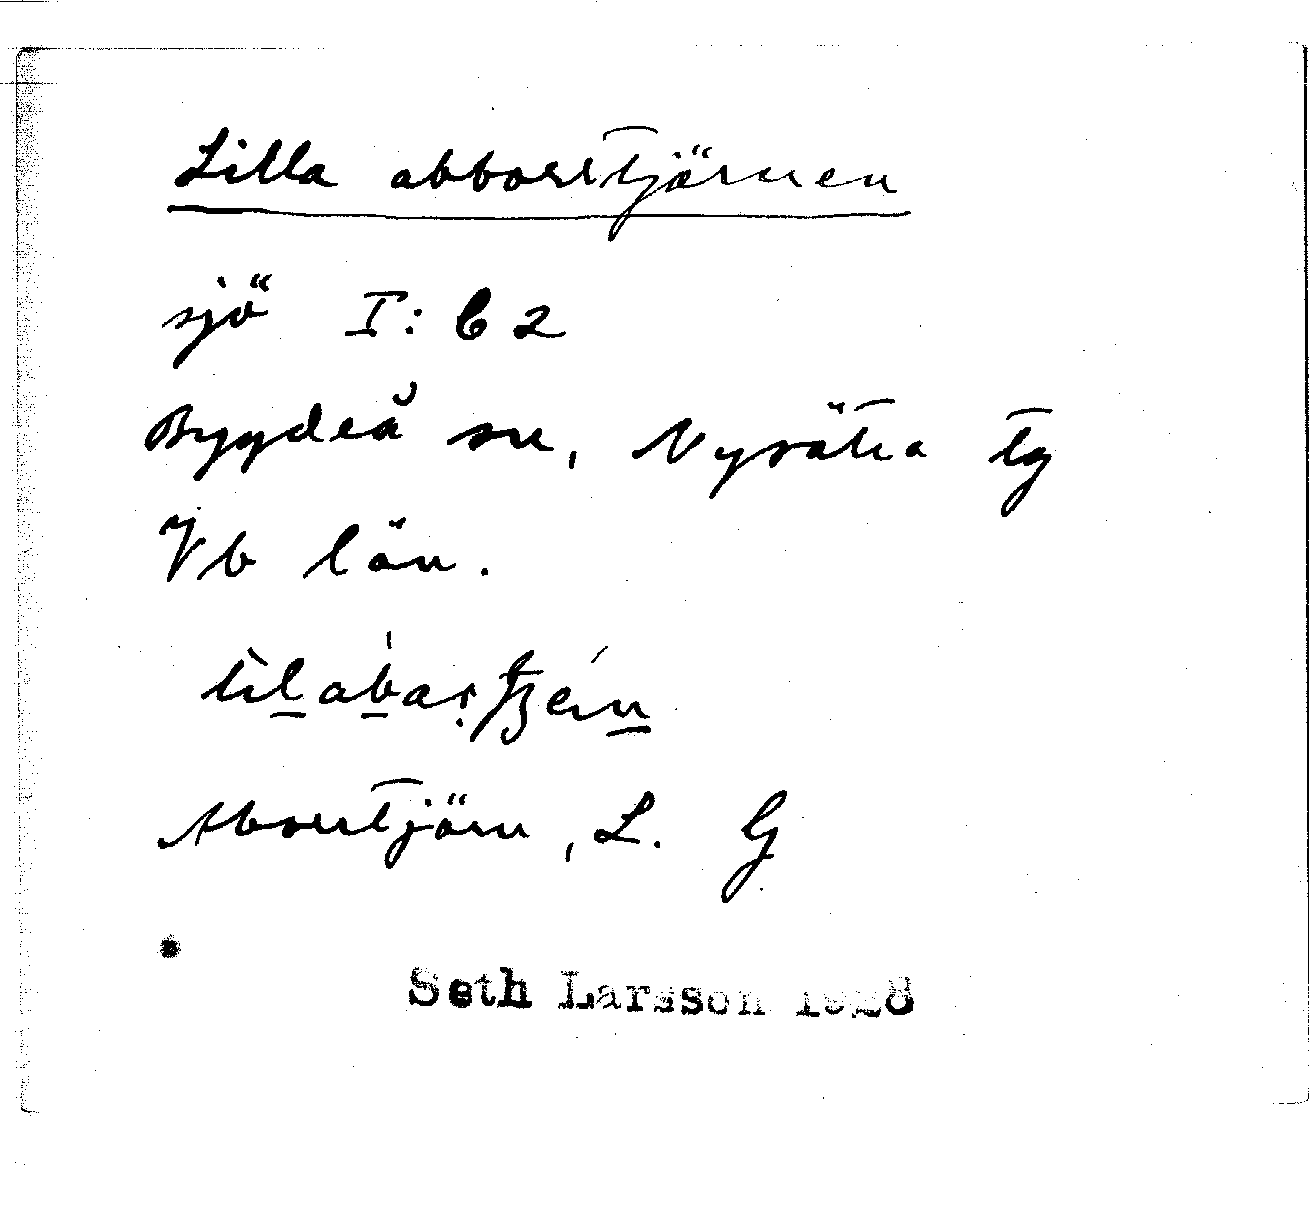 Lilla abborrtjärnen
sjö I: C 2
Bygdeå sn, Nysätra tg
Vb län.
Aborrtjärn, L. G
Seth Larsson 1928